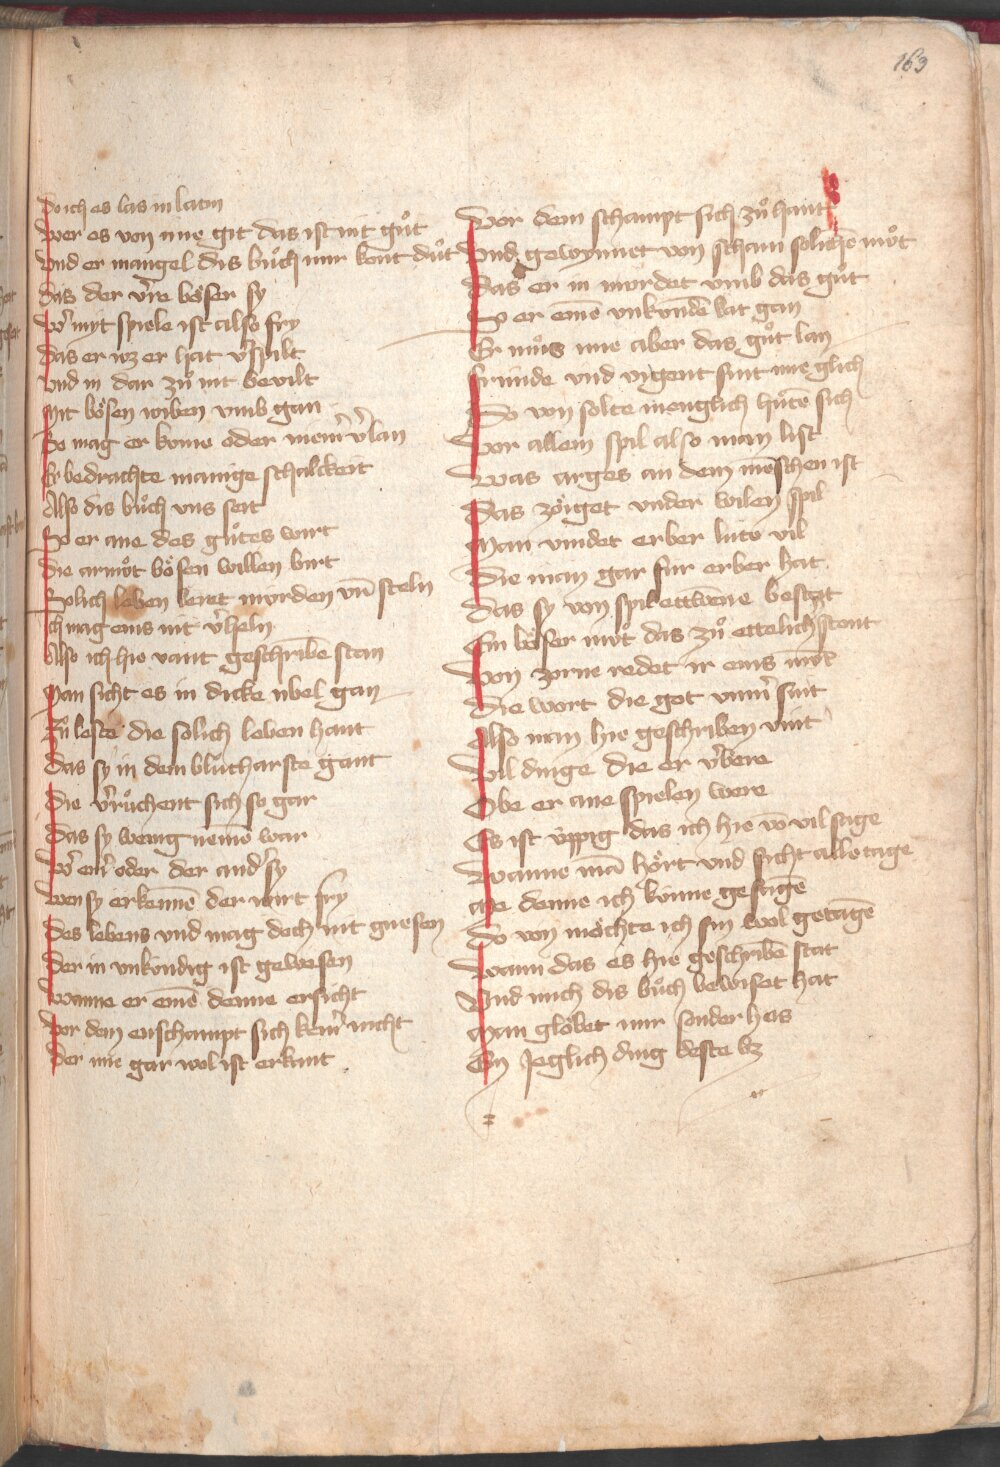 163
Do ich es las in latin
Wer es von mir git das ist nit guͦt
Vnd er mangel dis buͦch mir kont duͦt
Das der v̾re boͤser sy
W̾ myt spiele ist also fry
Das er wz er hat v̾spilt
Vnd in dar zuͦ nit bevilt
Mit boͤsen wiben vmb gan
So mag er kome oder niem̾ v̾lan
Er bedrachte manige schalckeit
Also dis buͦch vns seit
So er ane des guͦtes wirt
Die armuͦt boͤsen willen birt
Solich leben leret morden vn̄ steln
Ich mag eins nit v̾heln
Also ich hie vant geschribē stan
Man sicht es in dicke vbel gan
Zuͦ leste die solich leben hant
Das sy in dem bluͦtharste gant
Die v̾ruͦchent sich so gar
Das sy wenig nemē war
W̾ ein̾ oder der and̾ sy
Wen sy erkennē der wirt fry
Des lebens vnd mag doch nit gnesen
Der in vnkondig ist gewesen
Wanne er einē denne ersicht
Vor dem enschampt sich kein̾ nicht
Der nie gar wol ist erkant
Vor dem schampt sich zuͦ hant
Vnd gewynnet von scham solichē muͦt
Das er in mordet vmb das guͦt
So er einē vnkundē bat gan
Er muͦs nie aber das guͦt lan
Frunde vnd vigent sint nie glich
Do von solte menglich huͤtē sich
Vor allem spil also man list
Was arges an dem mēschen ist
Das zoͤiget vnder wilen spil
Man vindet erber lute vil
Die man gar fur erber hat
Das sy von spil ettwēne bestat
Ein boͤser muͦt das zuͦ ettelich stont
Von zorne redet ir eins munt
Die wort die got vnm̾ sint
Also man hie geschriben vint
Vil dinge die er v̾bere
Obe er ane spielen were
Es ist vͤppig das ich hie vō vil sage
Wanne mā hoͤrt vnd sicht alle tage
Me denne ich kunne gesagē
Do von moͤchte ich sin wol getagē
Wann das es hie geschribē stat
Vnd mich dis buͦch bewiset hat
Man gloͤbet mir sonder hes
Ein Jeglich ding deste bz